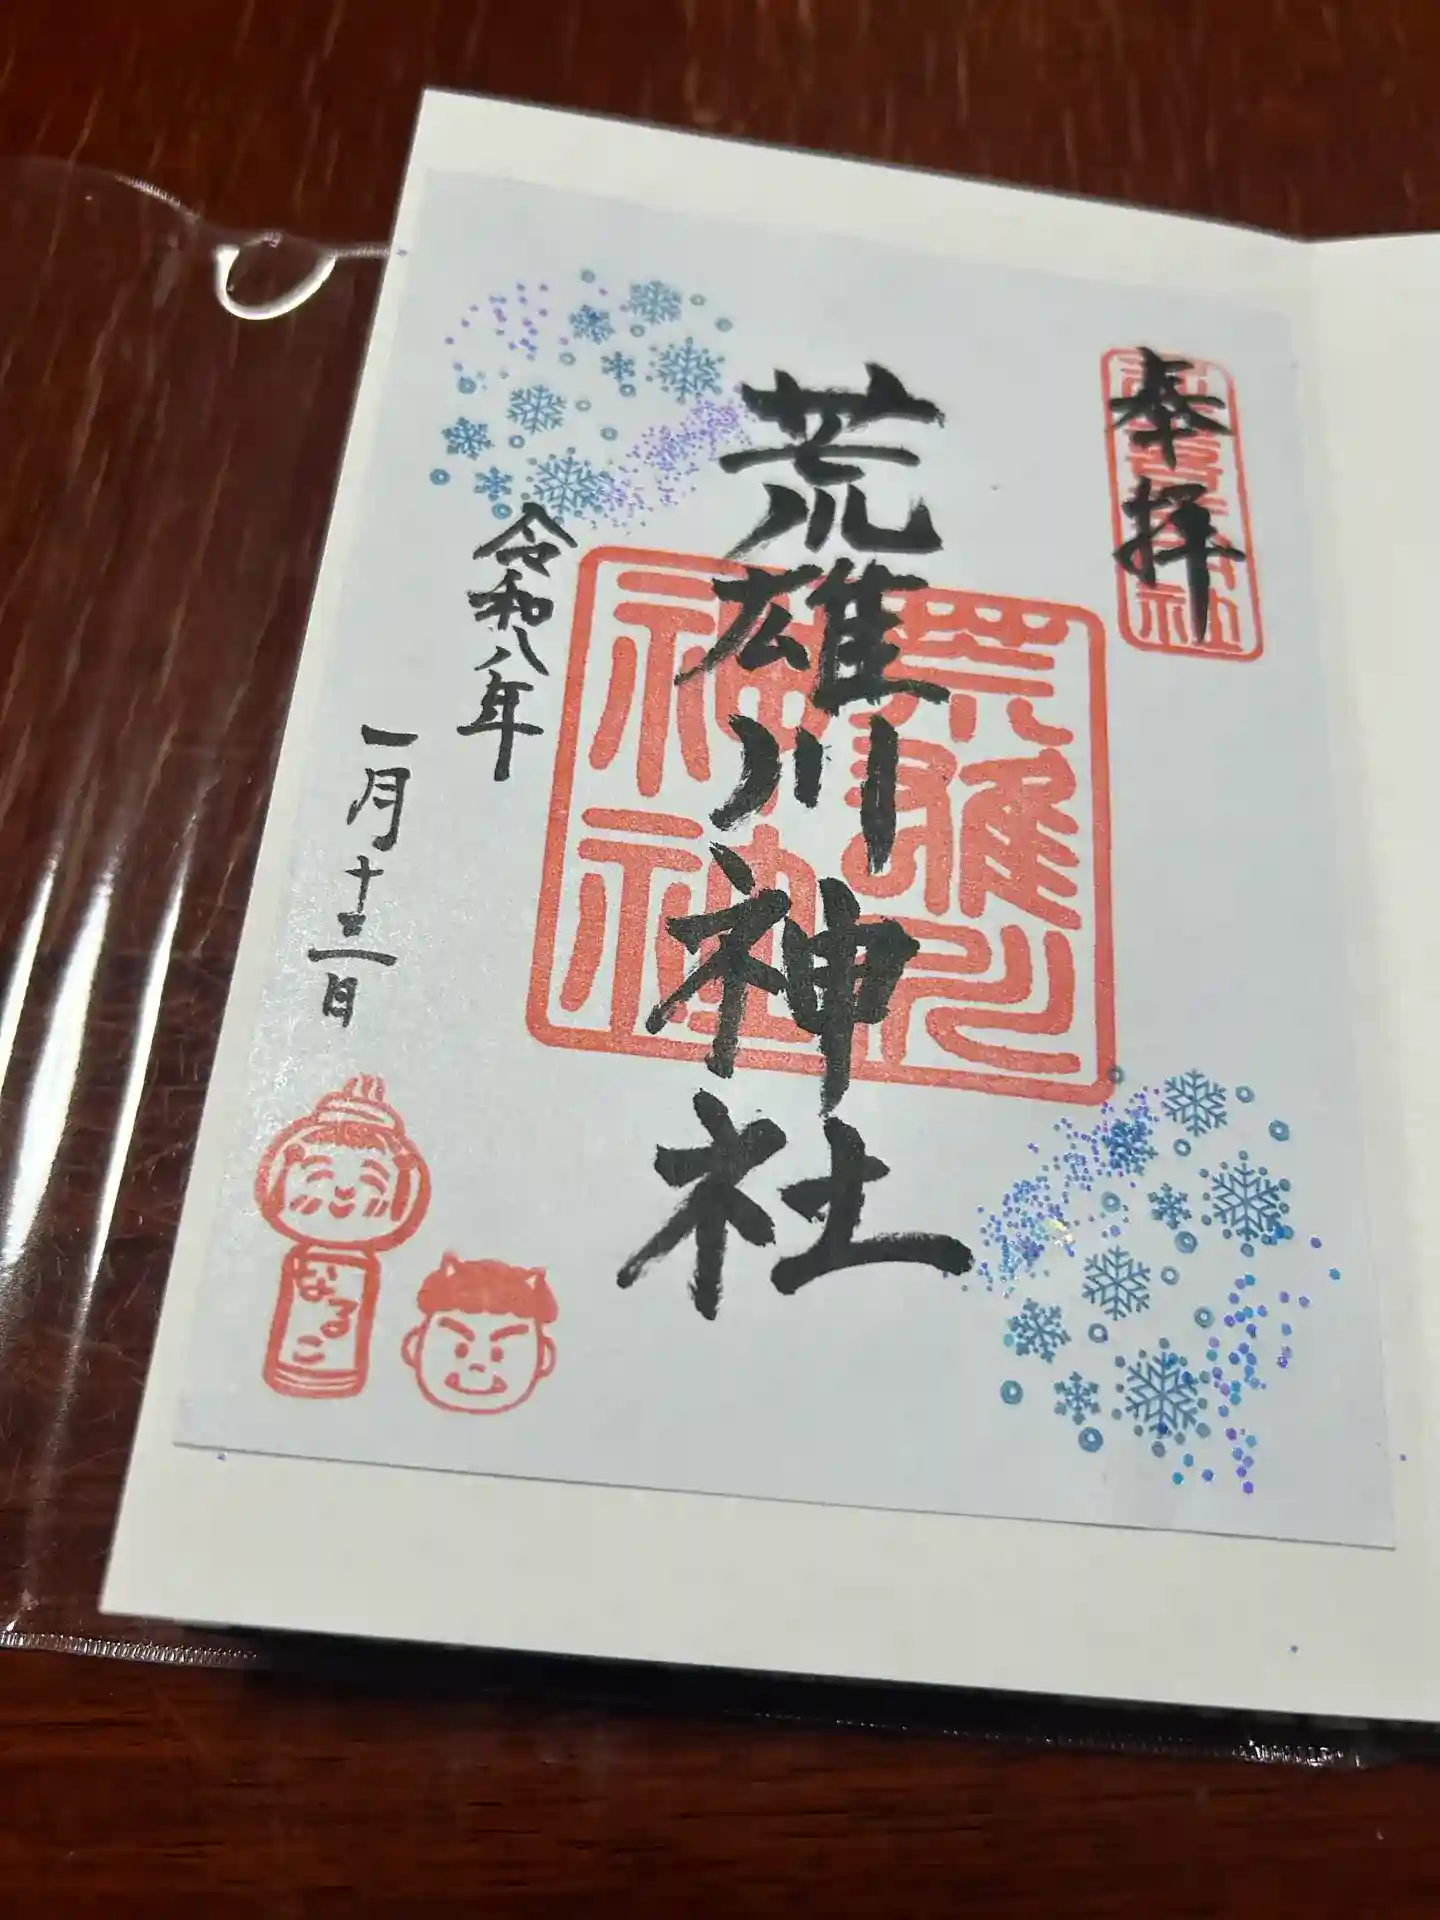 奉拝
荒雄川神社
令和八年
一月十二日
なるこ
荒雄川
神社